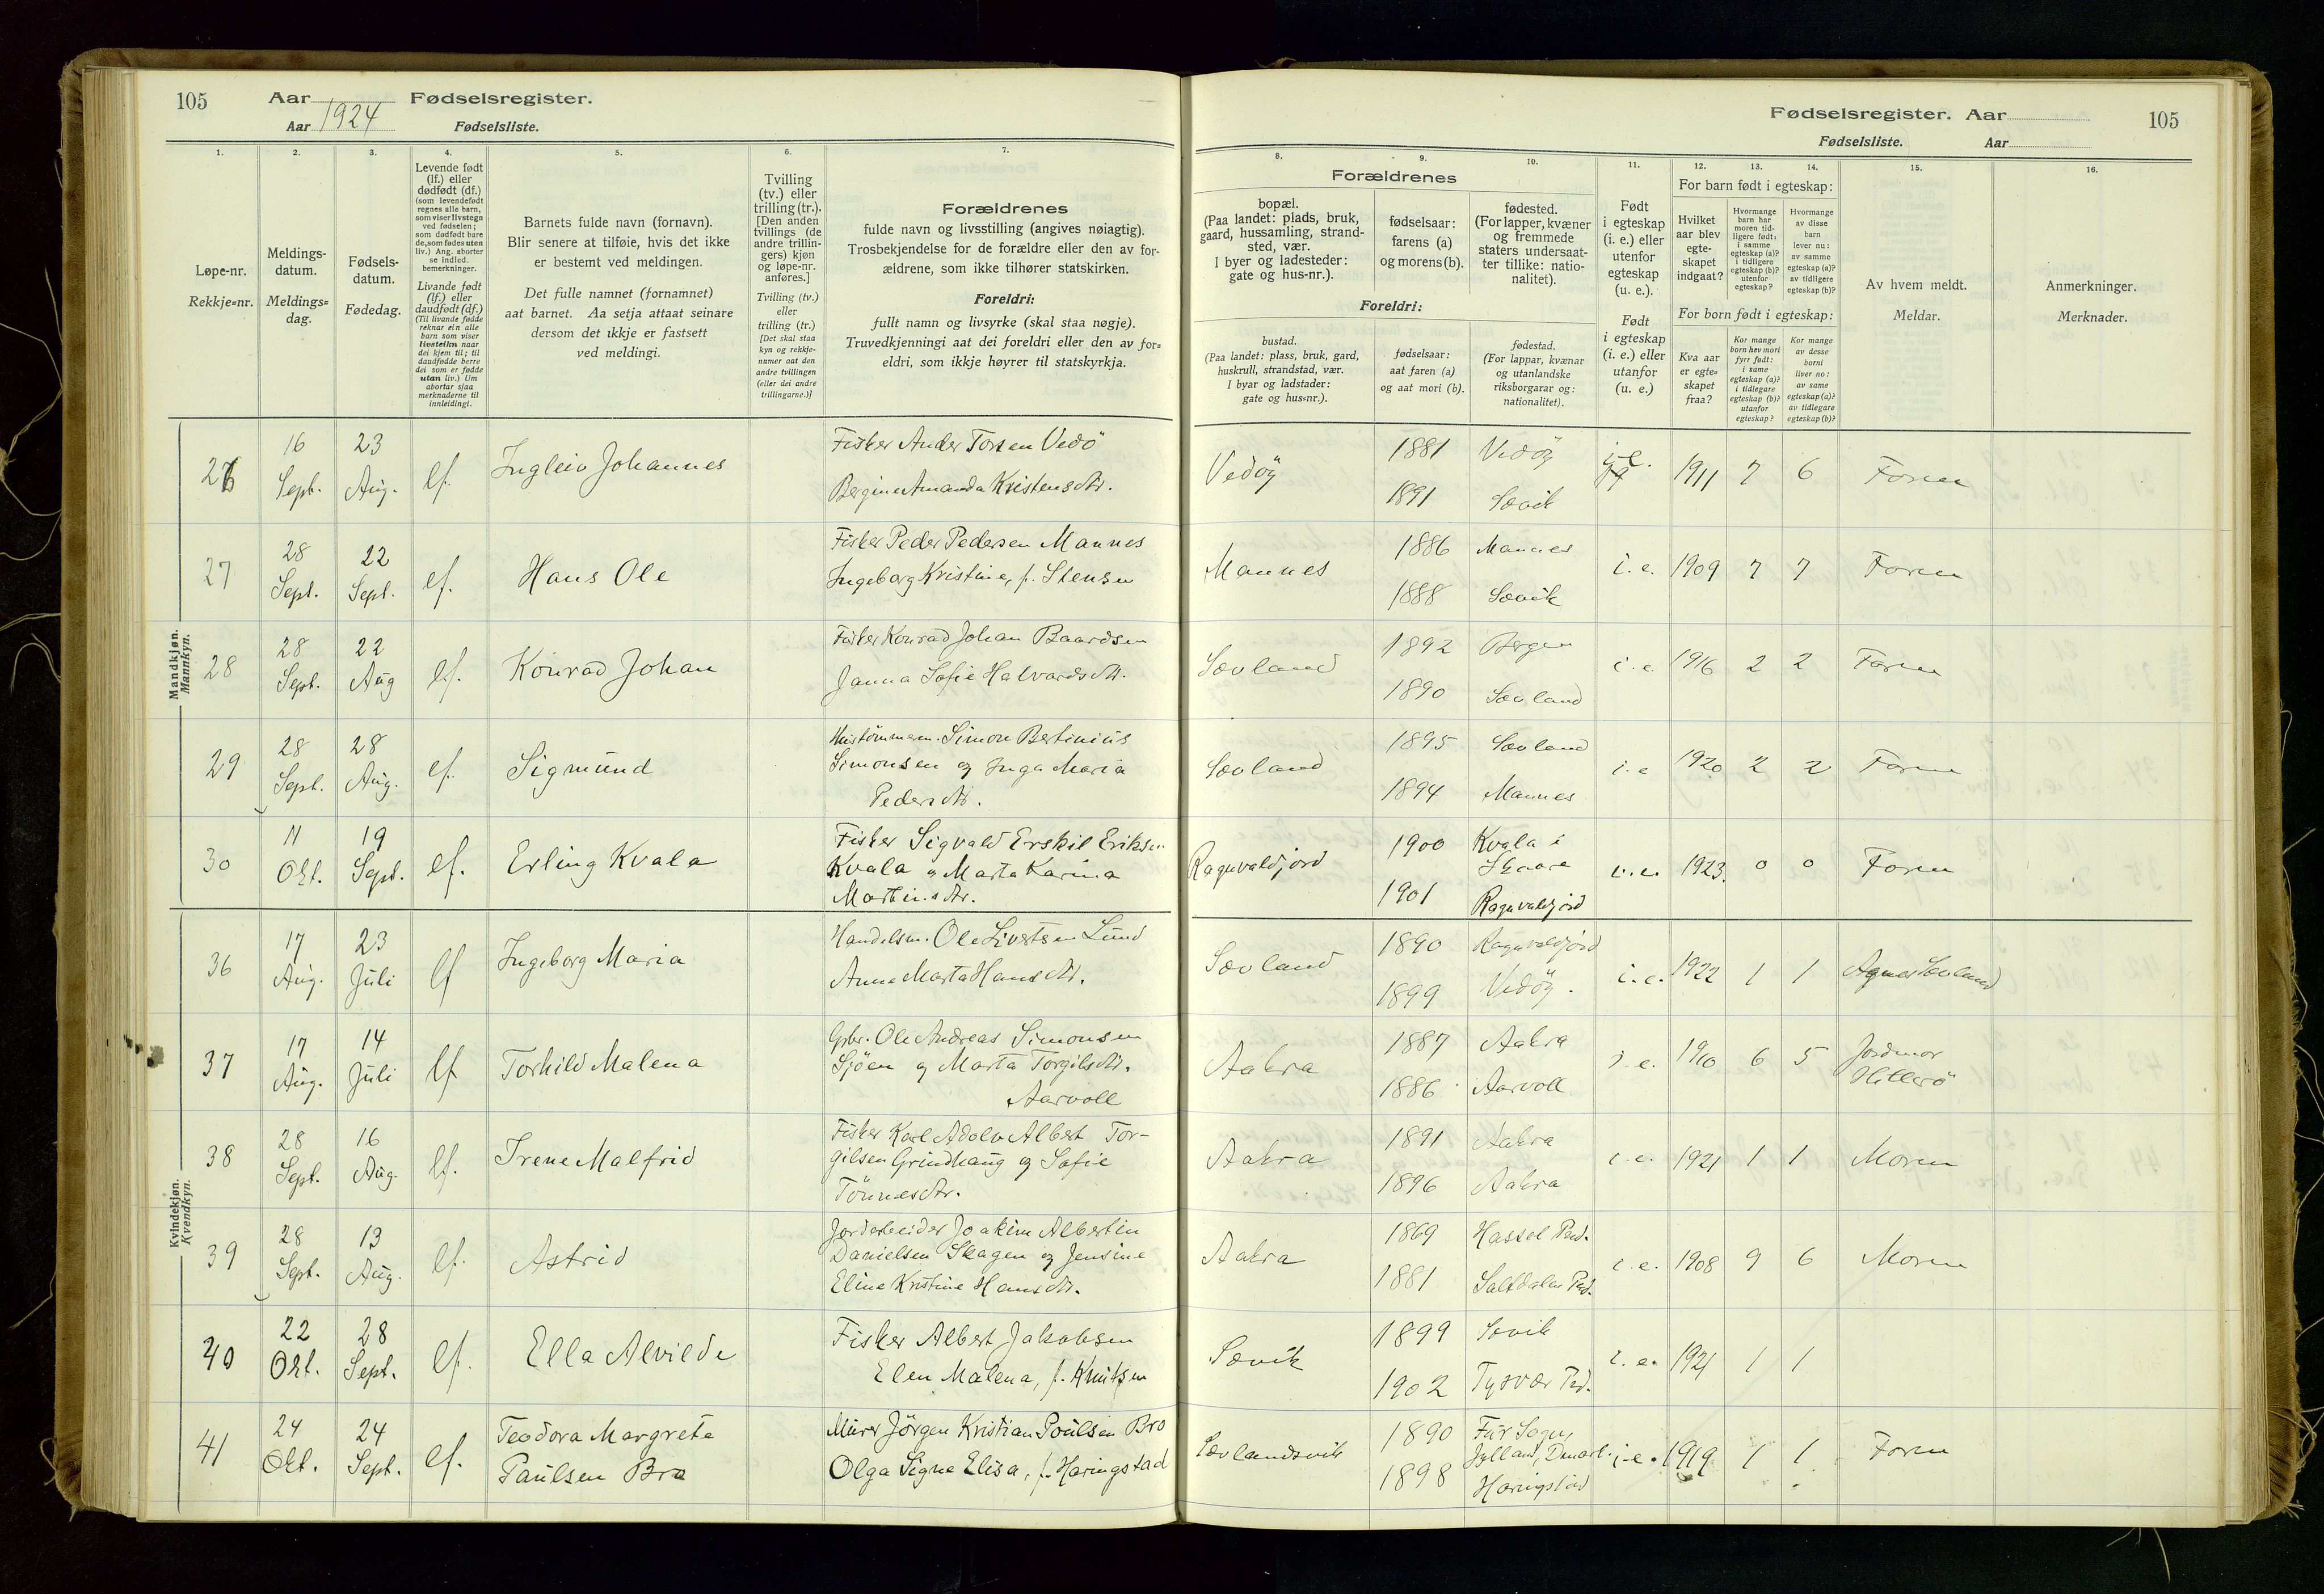 105
Aar
Fødselsregister.
Aar 1924
Fødselsliste.
Fødselsregister. Aar
105
Fødselsliste.
Aar
1.
2.
3.
4.
5.
6.
7.
8.
9.
10.
11.
12.
13.
14.
15.
16.
Løpe-nr.
Rekkje=nr.
Meldings-
datum.
Meldings=
dag.
Fødsels-
datum.
Fødedag.
Levende født
(lf.) eller
dødfødt (df.)
(som levendefødt
regnes alle barn,
som viser livstegn
ved fødselen;
som dødfødt bare
de, som fødes uten
liv.) Ang. aborter
se indled.
bemerkninger.
Livande født
(lf.) eller
daudfødt (df.)
(Til livande fødde
reknar ein alle
barn som viser
livsteikn naar
dei kjem til; til
daudfødde berre
dei som er fødde
utan liv.) Um
abortar sjaa
merknaderne til
innleidingi.
Barnets fulde navn (fornavn).
Blir senere at tilføie, hvis det ikke
er bestemt ved meldingen.
Det fulle namnet (fornamnet)
aat barnet. Aa setja attaat seinare
dersom det ikkje er fastsett
ved meldingi.
Tvilling
(tv.) eller
trilling (tr.).
[Den anden
tvillings (de
andre trillin-
gers) kjøn
og løpe-nr.
anføres.]
Tvilling (tv.)
eller
trilling (tr.)
[Det skal staa
kyn og rekkje-
numer aat den
andre tvillingen
(eller dei andre
trillingarne.)]
Forældrenes
fulde navn og livsstilling (angives nøiagtig).
Trosbekjendelse for de forældre eller den av for-
ældrene, som ikke tilhører statskirken.
Foreldri:
fullt namn og livsyrke (skal staa nøgje).
Truvedkjenningi aat dei foreldri eller den av for=
eldri, som ikkje høyrer til statskyrkja.
Forældrenes
bopæl.
(Paa landet: plads, bruk,
gaard, hussamling, strand-
sted, vær.
I byer og ladesteder:
gate og hus-nr.).
fødselsaar:
farens (a)
og morens (b).
fødested.
(For lapper, kvæner
og fremmede
staters undersaat-
ter tillike: natio-
nalitet).
Foreldri:
bustad.
(Paa landet: plass, bruk, gard,
huskrull, strandstad, vær.
I byar og ladstader:
gate og hus=nr.).
fødselsaar:
aat faren (a)
og aat mori (b).
fødestad.
(For lappar, kvænar
og utanlandske
riksborgarar og:
nationalitet).
Født
i egteskap
(i. e.) eller
utenfor
egteskap
(u. e.).
Født
i egteskap
(i. e.) eller
utanfor
(u. e.)
For barn født i egteskap:
Hvilket
aar blev
egte-
skapet
indgaat?
Hvormange
barn har
moren tid-
ligere født:
i samme
egteskap (a)?
i tidligere
egteskap (b)?
utenfor
egteskap?
Hvormange
av disse
barn
lever nu:
av samme
egteskap (a)?
av tidligere
egteskap (b)?
For born født i egteskap:
Kva aar
er egte=
skapet
fraa?
Kor mange
born hev mori
fyrr født:
i same
egteskap (a)?
i tidlegare
egteskap (b)?
utanfor
egteskap?
Kor mange
av desse
borni
liver no:
av same
egteskap (a)?
av tidlegare
egteskap (b)?
Av hvem meldt.
Meldar.
Anmerkninger.
Merknader.
Mandkjøn.
Mannkyn.
26 16 Sept. 23 Aug. lf. Ingleiv Johannes
Fisker Ander Torsen Vedö
Bergine Amanda Kristensdtr.
Vedöy 1881 Vedöy i.e. 1911 7 6 Faren
1891 Sævik
27 28 Sept. 22 Sept. lf. Hans Ole
Fisker Peder Pedersen Mannes
Ingeborg Kristine, f. Stensen
Mannes 1886 Mannes i.e. 1909 7 7 Faren
1888 Sævik
28 28 Sept. 22 Aug lf. Konrad Johan
Fisker Konrad Johan Baardsen
Janna Sofie Halvardsdtr.
Sævland 1892 Bergen i.e. 1916 2 2 Faren
1890 Sævland
29 28 Sept. 28 Aug. lf. Sigmund
Simon Bertinius
Simonsen og Inga Maria
Pedersdtr.
Sævland 1895 Sævland i.e 1920 2 2 Faren
1894 Mannes
30 11 Okt. 19 Sept. lf. Erling Kvala
Fisker Sigvald Erskil Eriksen
Kvala og Marta Karina
Martinsdtr.
Ragnvaldjord 1900 Kvala i
Skaare i.e. 1923. 0 0 Faren
1901 Ragnvaldjord
Kvindekjøn.
Kvendkyn.
36 17 Aug. 23 Juli lf Ingeborg Maria
Handelsm. Ole Sivertsen Lund
Anne Marta Hansdtr.
Sævland 1890 Ragnvaldjord i.e. 1922 1 1 Agnes Sævland
1899 Vedöy.
37 17 Aug. 14 Juli lf Torhild Malena
Gbr. Ole Andreas Simonsen
Sjöen og Marta Torgilsdtr.
Aarvoll
Aakra 1887 Aakra i.e. 1910 6 5 Jordmor
Hillesö
1886 Aarvoll
38 28 Sept. 16 Aug. lf. Irene Malfrid
Fisker Karl Adolv Albert Tor-
gilsen Grindhaug og Sofie
Tönnesdtr.
Aakra 1891 Aakra i.e. 1921 1 1 Moren
1896 Aakra
39 28 Sept. 13 Aug. lf. Astrid
Jordarbeider Joakim Albertin
Danielsen Skagen og Jensine
Eline Kristine Hansdtr.
Aakra 1869 Hassel Pnd. i.e. 1908 9 6 Moren
1881 Saltdalen Pnd.
40 22 Okt. 28 Sept. lf. Ella Alvilde
Fisker Albert Jakobsen
Elen Malena, f. Knutsen
Sævik 1899 Sævik i.e. 1921 1 1
1902 Tysvær Pnd.
41 24 Okt. 24 Sept. lf. Teodora Margrete
Paulsen Bro
Murer Jörgen Kristian Poulsen Bro
Olga Signe Elisa, f. Haringstad
Sævlandsvik 1890 Für Sogn,
Jylland, Danmark i.e. 1919 1 1 Faren
1898 Haringstad